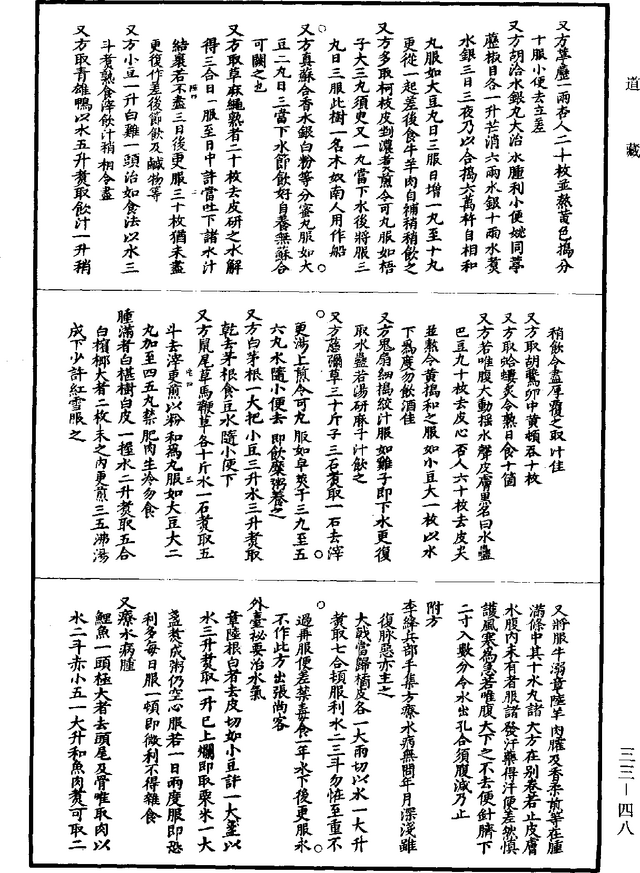 道藏
又方葶藶一兩杏人二十枚並熬黃色搗分
十服小便去立差
又方胡洽水銀丸大治水腫利小便姚同葶
藶椒目各一升芒消六兩水銀十兩水煑
水銀三日三夜乃以合搗六萬杵自相和
丸服如大豆丸日三服日增一丸至十丸
更從一起差後食牛羊肉自補稍稍飲之
又方多取柯枝皮剉濃煑煎令可丸服如梧
子大三丸須臾又一丸當下水後將服三
丸日三服此樹一名木奴南人用作船
又方真蘇合香水銀白粉等分蜜丸服如大
豆二丸日三當下水節飲好自養無蘇合
可闕之也
又方取草麻繩熟者二十枚去皮研之水解
得三合日一服至日中許當吐下諸水汁
結裹若不盡三日後更服三十枚猶未盡
更復作差後節飲及鹹物等
又方小豆一升白雞一頭治如食法以水三
斗煑熟食滓飲汁稍稍令盡
又方取青雄鴨以水五升煑取飲汁一升稍
稍飲令盡厚覆之取汗佳
又方取胡鷰卵中黃頓吞十枚
又方取蛤螻炙令熟日食十箇
又方若唯腹大動搖水聲皮膚黑名曰水蠱
巴豆九十枚去皮心杏人六十枚去皮尖
並熬令黃搗和之服如小豆大一枚以水
下爲度勿飲酒佳
又方鬼扇細搗絞汁服如雞子即下水更復
取水蠱若湯研麻子汁飲之
又方慈彌草三十斤水三石煑取一石去滓
更湯上煎令可丸服如皂莢子三丸至五
六丸水隨小便去即飲糜粥養之
又方白茅根一大把小豆三升水三升煑取
乾去茅根食豆水隨小便下
又方鼠尾草馬鞭草各十斤水一石煑取五
斗去滓更煎以粉和爲丸服如大豆大二
丸加至四五丸禁肥肉生冷勿食
腫滿者白椹樹白皮一握水二升煑取五合
白檳榔大者二枚末之內更煎三五沸湯
成下少許紅雪服之
又將服牛溺章陸羊肉臛及香柔煎等在腫
滿條中其十水丸諸大方在別卷若止皮膚
水腹內未有者服諸發汗藥得汗便差然慎
護風寒爲急若唯腹大下之不去便針臍下
二寸入數分令水出孔合須腹減乃止
附方
李絳兵部手集方療水病無問年月深淺雖
復脈惡亦主之
大戟當歸橘皮各一大兩切以水一大升
煑取七合頓服利水二三斗勿怪至重不
過再服便差禁毒食一年水下後更服永
不作此方出張尚客
外臺祕要治水氣
章陸根白者去皮切如小豆許一大盞以
水三升煑取一升已上爛即取粟米一大
盞煑成粥仍空心服若一日兩度服即恐
利多每日服一頓即微利不得雜食
又療水病腫
鯉魚一頭極大者去頭尾及骨唯取肉以
水二斗赤小豆一大升和魚肉煑可取二
三三—四八